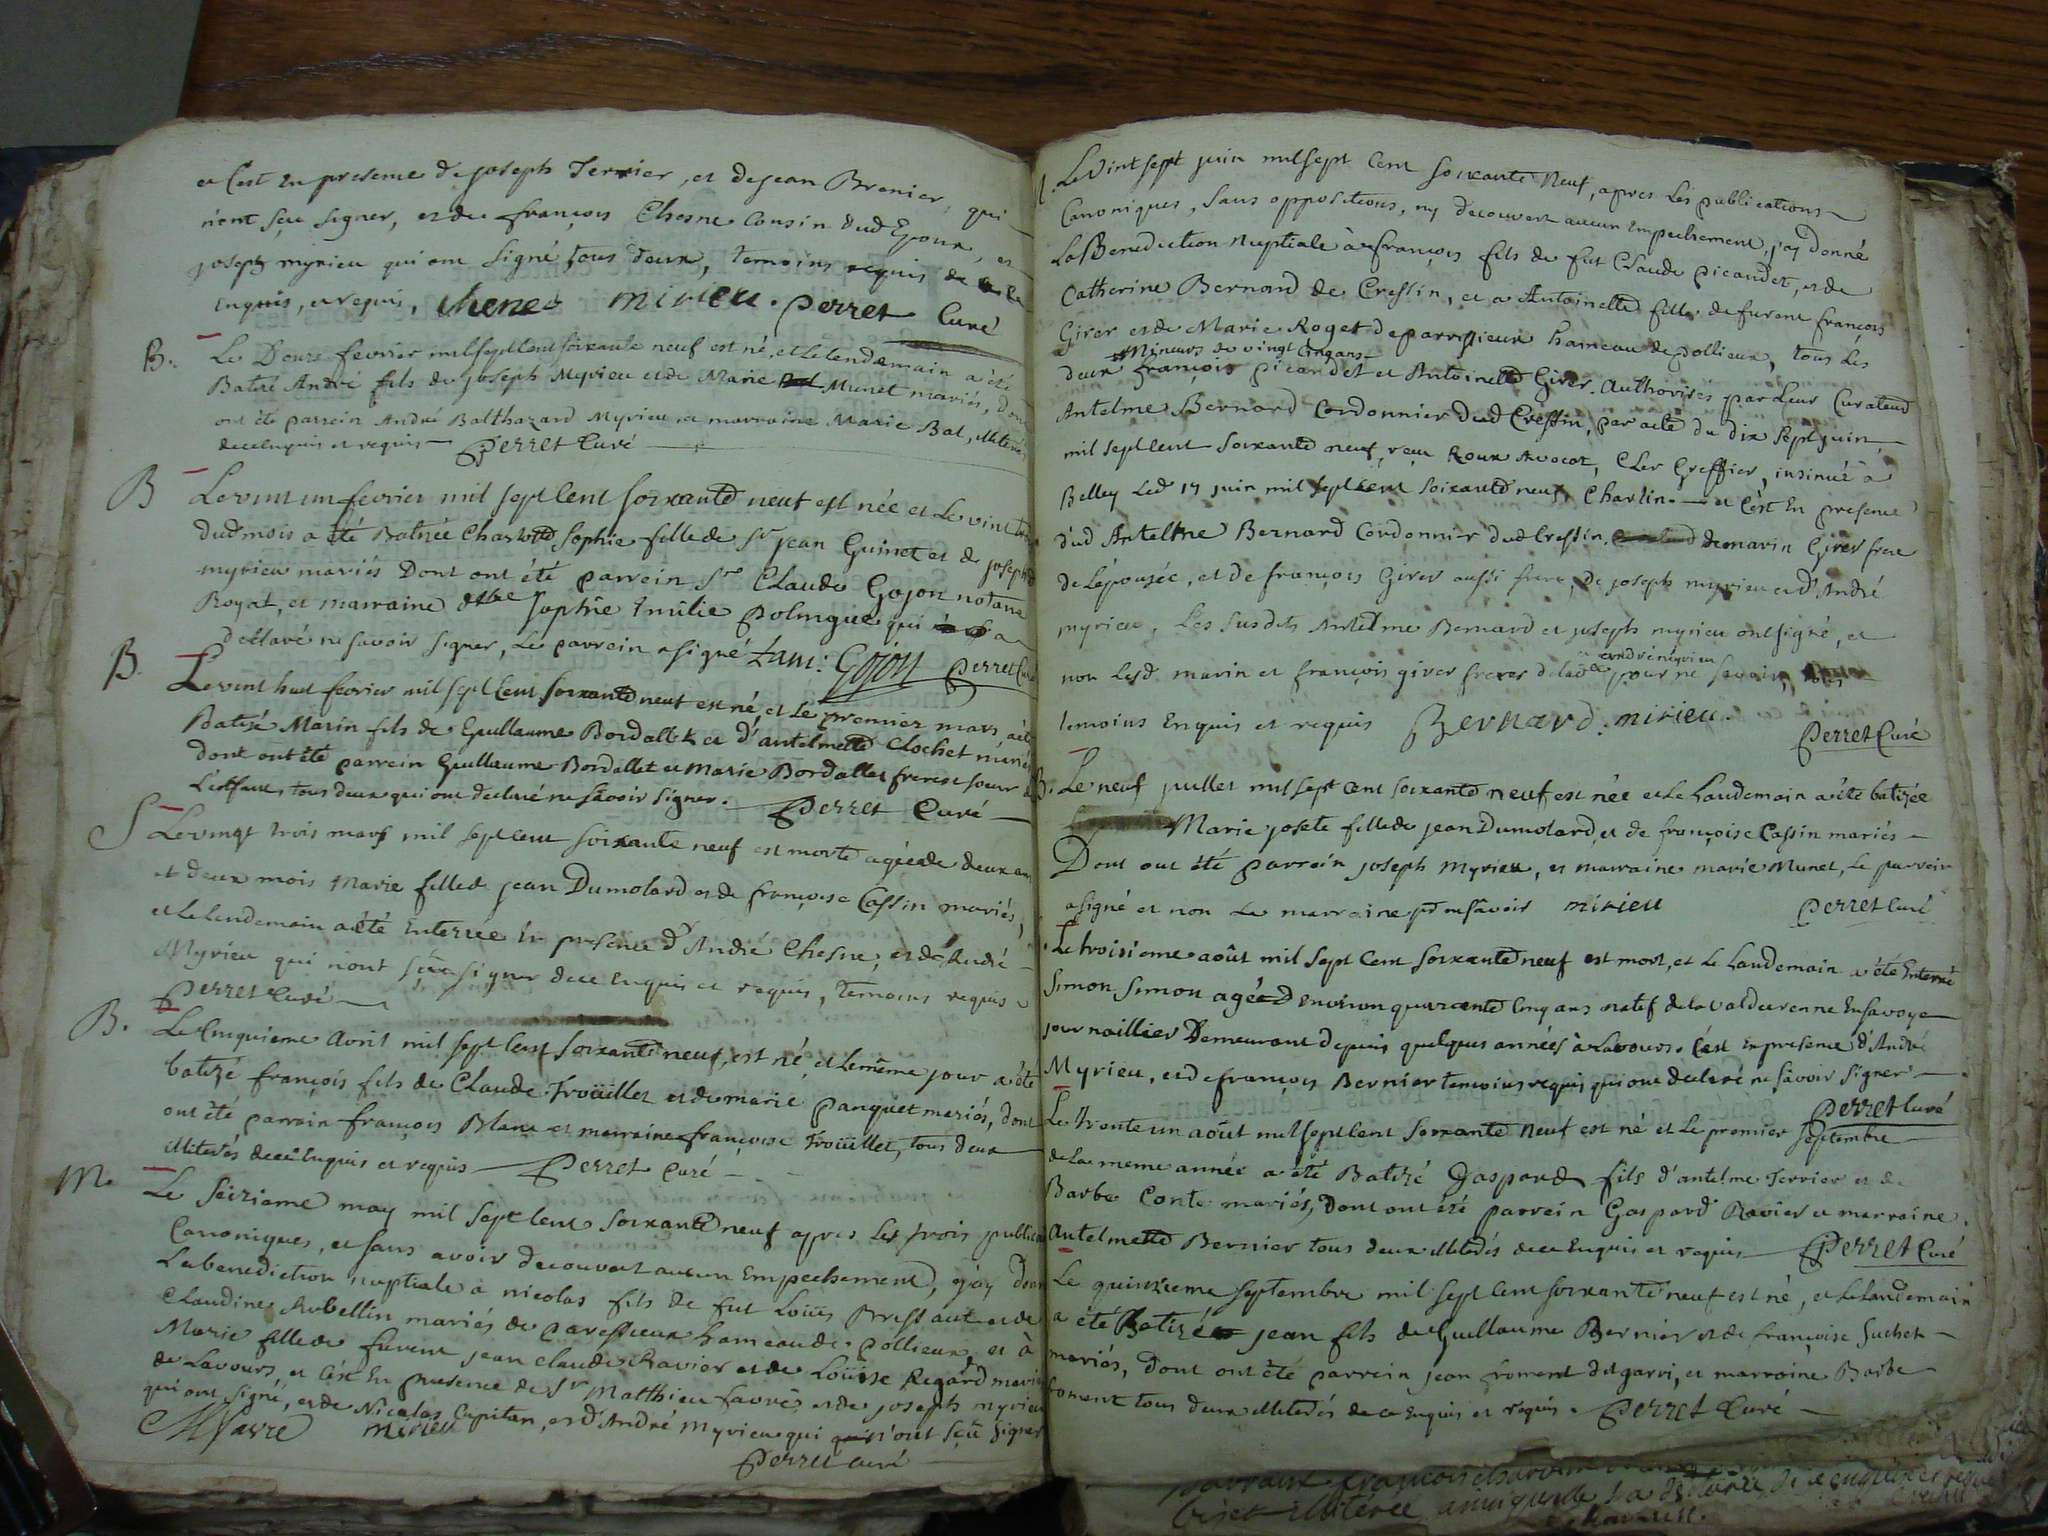 et C'est En presence de joseph Terrier, et de jean Brenier, qui
n'ont sçu signer, et de françois Chesne Cousin dud Epoux, et
joseph myrieu qui ont signé tous deux, temoins requis de ce
Enquis, et requis, Chene mirieu. perret Curé
B. Le Douze fevrier mil sept cent soixante neuf est né, et le lendemain a été
Batizé André fils de joseph Myrieu et de Marie Munet mariés, dont
ont été parrein André Balthazard Myrieu et marraine Marie Bal, illiterés
de ce enquis et requis perret Curé
B Le vint un fevrier mil sept cent soixante neuf est née et le vint
dud mois a été Batizée Charlotte Sophie fille de Sr jean Guinet et de josephte
myrieu mariés Dont ont été parrein Sre Claude Gojon notaire
Royal, et marraine dlle Sophie Emilie Polingue qui a
déclaré ne savoir signer, Le parrein a signé Gojon perret Curé
B. Le vint huit fevrier mil sept cent soixante neuf est né, et Le premier mars a été
Batizé Marin fils de Guillaume Bordallet et d'antelmette Clochet mariés
dont ont été parrein Guillaume Bordallet et Marie Bordallet frere et sœur de
L'enfant, tous deux qui ont declaré ne savoir signer. perret Curé
S Le vingt trois mars mil sept cent soixante neuf est morte agée de deux ans
et deux mois Marie fille de jean Dumolard et de françoise Cassin mariés,
et Le lendemain a été Enterrée En presence d'André Chesne, et d'André
Myrieu qui n'ont sçu signer de ce Enquis et requis, temoins requis
perret Curé
B. Le Cinquieme avril mil sept cent soixante neuf, est né, et le même jour a été
batizé françois fils de Claude Troüillet et de marie panquet mariés, dont
ont été parrein françois Blanc et marraine françoise Troüillet, tous deux
illiterés de ce Enquis et requis perret Curé
M. Le Seizieme may mil sept cent soixante neuf apres Les trois publications
Canoniques, et sans avoir decouvert aucun Empechement, j'ay donné
La benediction nuptiale a nicolas fils de fut Loüis Bressaut et de
Claudine Rubellin mariés de paressieux hameau de pollieux, et à
Marie fille de furent jean claude Ravier et de Loüise Regard mariés
de Lavours, et C'est En presence de Sr Matthieu favre et de joseph myrieu
qui ont signé, et de Nicolas Capitan, et d'André myrieu qui n'ont sçu signer
MFavre mirieu
perret curé
Le Vint sept juin mil sept Cent soixante Neuf, apres Les publications
Canoniques, sans oppositions, ny decouvert aucun Empechement, j'ay donné
La Benediction Nuptiale à françois fils de fut Claude picaudet, et de
Catherine Bernard de Cressin, et a Antoinette fille de furent françois
Girer et de Marie Roget de parissieux hameau de pollieux, tous Les
Mineurs de vingt Cinq ans
deux françois picaudet et Antoinette Girer. Authorisés par Leur Curateur
Antelme Bernard Cordonnier dud Cressin, par acte du dix sept juin
mil sept cent soixante neuf, reçu Roux Avocat, Cler Greffier, insinué a
Belley Led 17 juin mil sept cent soixante neuf. Charlin. et C'est En presence
dud Antelme Bernard Cordonnier dud Cressin, de marin Girer frere
de L'épousée, et de françois Girer aussi frere, de joseph myrieu et d'André
myrieu, Les susdits Antelme Bernard et joseph myrieu ont signé, et
andré myrieu
non Lesd. marin et françois girer freres pour ne savoir,
temoins Enquis et requis Bernard. mirieu.
perret Curé
B. Le neuf juillet mil sept cent soixante neuf est née et le Laudemain a été batizée
Marie josete fille de jean Dumolard et de françoise Cassin mariés
Dont ont été parrein joseph Myrieu, et marraine marie Munet, Le parrein
a signé et non La marraine pr ne savoir mirieu perret Curé
Le troisieme août mil sept Cent soixante neuf est mort, et Le Laudemain a été Enterré
Simon Simon agé d'environ quarante cinq ans natif de la Valdeurenne En savoye
journaillier Demeurant depuis quelques années à Lavours. C'est En presence d'André
Myrieu, et de françois Bernier temoins requis qui ont declaré ne savoir signer
perret curé
Le trente un août mil sept cent soixante Neuf est né et Le premier septembre
de La meme année a été Batizé Gaspard fils d'antelme Terrier et de
Barbe Conte mariés, Dont ont été parrein Gaspard Ravier et marraine
Antelmette Bernier tous deux illiterés de ce Enquis et requis perret Curé
Le quinzieme septembre mil sept cent soixante neuf est né, et Le Laudemain
a été Batizé jean fils de Guillaume Bernier et de françoise Suchet
mariés, Dont ont été parrein jean froment dit garri, et marraine Barbe
froment tous deux illiterés de ce Enquis et requis. perret Curé
parrain françois
illiterée